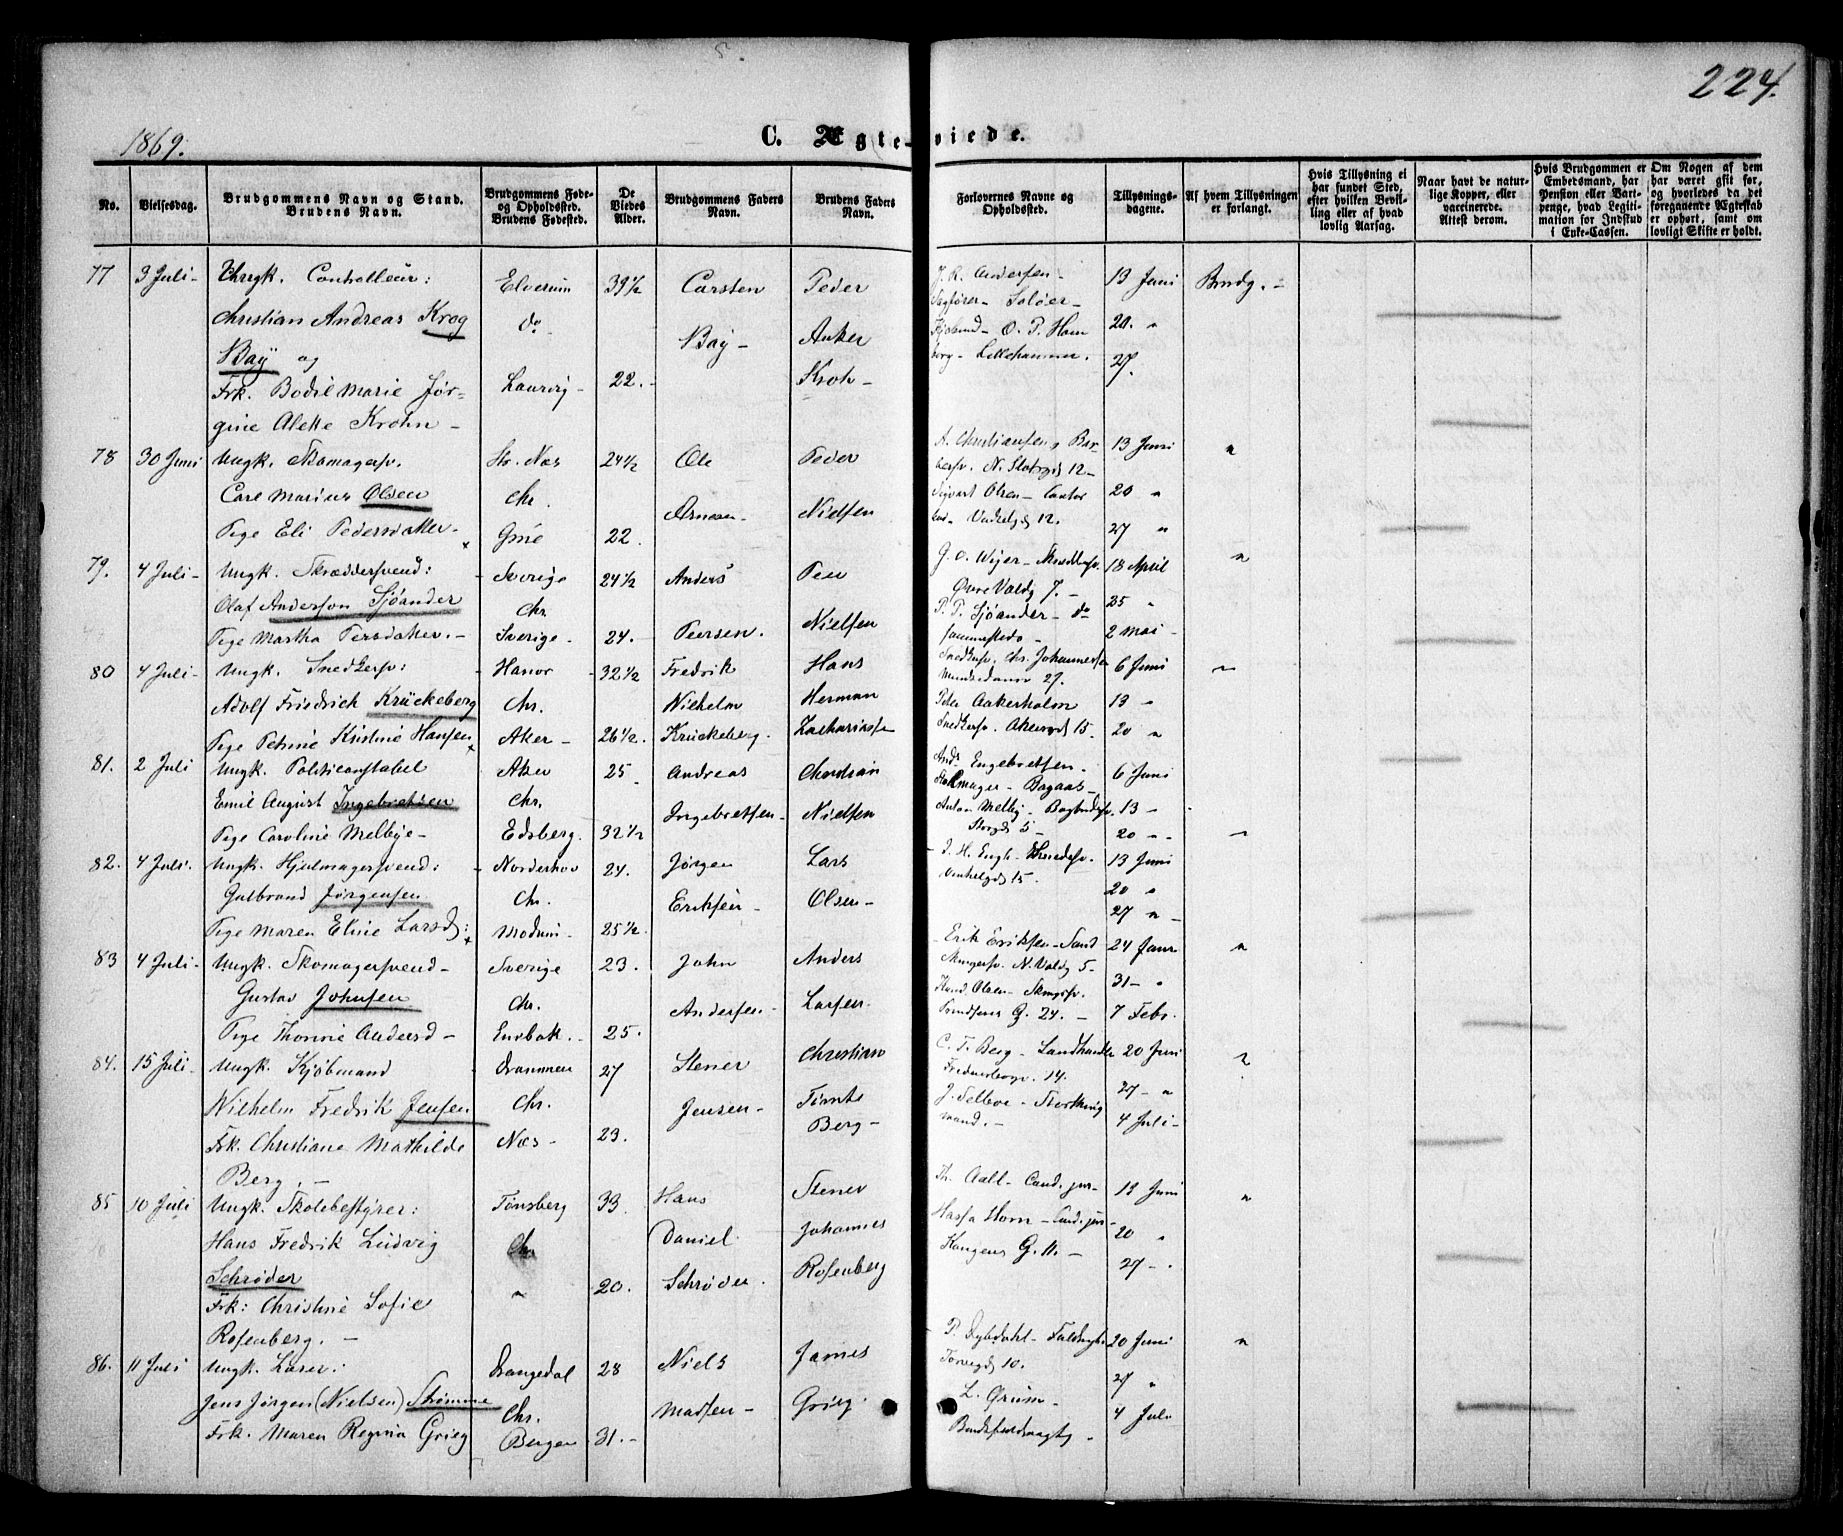 224.
1869.
C. Ægte-viede.
No.
Vielsesdag.
Brudgommens Navn og Stand.
Brudens Navn.
Brudgommens Føde-
og Opholdssted.
Brudens Fødested.
De
Viedes
Alder.
Brudgommens Faders
Navn.
Brudens Faders
Navn.
Forlovernes Navne og
Opholdssted.
Tillysnings-
dagene.
Af hvem Tillysningen
er forlangt.
Hvis Tillysning ei
har fundet Sted,
efter hvilken Bevil-
ling eller af hvad
lovlig Aarsag.
Naar havt de natur-
lige Kopper, eller
vaccinerede.
Attest derom.
Hvis Brudgommen er
Embedsmand, har
Pension eller Vart-
penge, hvad Legiti-
mation for Indskud
i Enke-Cassen.
Om Nogen af dem
har været gift før,
og hvorledes da det
foregaaende Ægteskab
er ophørt, samt om
lovligt Skifte er holdt.
77 3 Juli - Ungk. Controlleur: Elverum 39½ Carsten Peder J. R. Andersen - 13 Juni Brudg. -
Christian Andreas Krog do Bay - Anker Sagfører - Soløer - 20. "
Bay og Kroh - O. P. Ham
Frk. Bodil Marie Jør- Laurvig - 22. - berg - Lillehammer. 27.
gine Alette Krohn -
78 30 Juni Ungk. Skomagersv. Str. Næs 24½ Ole Peder A. Christiansen, Bar- 13 Juni "
Carl Marius Olsen Chr. bersv. N. Slotsgd 12 -
Sigvart Olsen - Cantor 20 "
Pige Eli Pedersdatter - Grue 22. Nielsen 12. 27 "
79. 4 Juli - Ungk. Skrædersvend: Sverige 24½ Anders Peer G. O. Wejer - 18 April "
Olaf Anderson Sjöander Chr. Øvre Voldg 7. - 25 "
Pige Martha Persdatter. - Sverige - 24. Peersen. Nielsen P. P. Sjöander - do 2 Mai -
80 4 Juli - Ungk. Snedkersv: Hanov - 32½ Fredrik Hans Snedkersv. Chr. Johannesen 6 Juni "
Adolf Friedrich Krückeberg Chr. Wilhelm Herman 27. Peter Aakerholm 13 "
Pige Petrine Kristine Hansen Aker - 26½. Krückeberg. Zachariasen Snedkersv. Akersgd 15. 20 "
81. 2 Juli Ungk. Politiconstabel Aker 25 Andreas Christian And. Engebretsen. 6 Juni
Emil August Ingebretsen Chr. Ingebretsen - Nielsen Anton Melby - 13 -
Pige Caroline Melbye - Edsberg. 32½ Storgd 5 - 20 "
82. 4 Juli. Ungk. Hjulmagersvend: Norderhov 24. Jørgen Lars J. H. Engh - 13 Juni
Gulbrand Jørgensen Chr. Eriksen - Olsen - 15. 20 "
Pige Maren Eline Larsd: Modum - 25½. 27 " -
83 4 Juli - Ungk. Skomagersvend - Sverige 23. John Anders Erik Eriksen - 24 Janr "
Gustav Johnsen Chr. Andersen - Larsen. N. Voldg 5 - 31 - "
Pige Thonnie Andersd - Enebak. - 25. Olsen - G. 24. - 7 Febr.
84. 15 Juli - Ungk. Kjøbmand Drammen 27 Stener Christian C. F. Berg - Landhandler 20 Juni "
Wilhelm Fredrik Jensen Chr. Jensen - Tømte 14. 27 - "
Frk. Christiane Mathilde Næs - 23. Berg - J. Selboe - Storthing 4 Juli -
Berg. - mand. -
85 10 Juli Ungk. Skolebestyrer: Tønsberg 33. Hans Stener Th. Aall - Cand. jur - 13 Juni "
Hans Fredrik Ludvig Chr. Daniel Johannes Horn - Cand. jur - 20 "
Schrøder " 20. Schrøder. Rosenberg Kongens G. 11. - 27 - "
Frk: Christine Sofie
Rosenberg. -
86. 11 Juli Ungk. Lærer: Drangedal 28 Niels James P. Dybdahl - 20 Juni "
Torvegd 10. 27 "
Jens Jørgen (Nielsen) Strømme Chr. Madsen - Grieg. L. Ørum - 4 Juli
Frk. Maren Regina Grieg Bergen 31. -